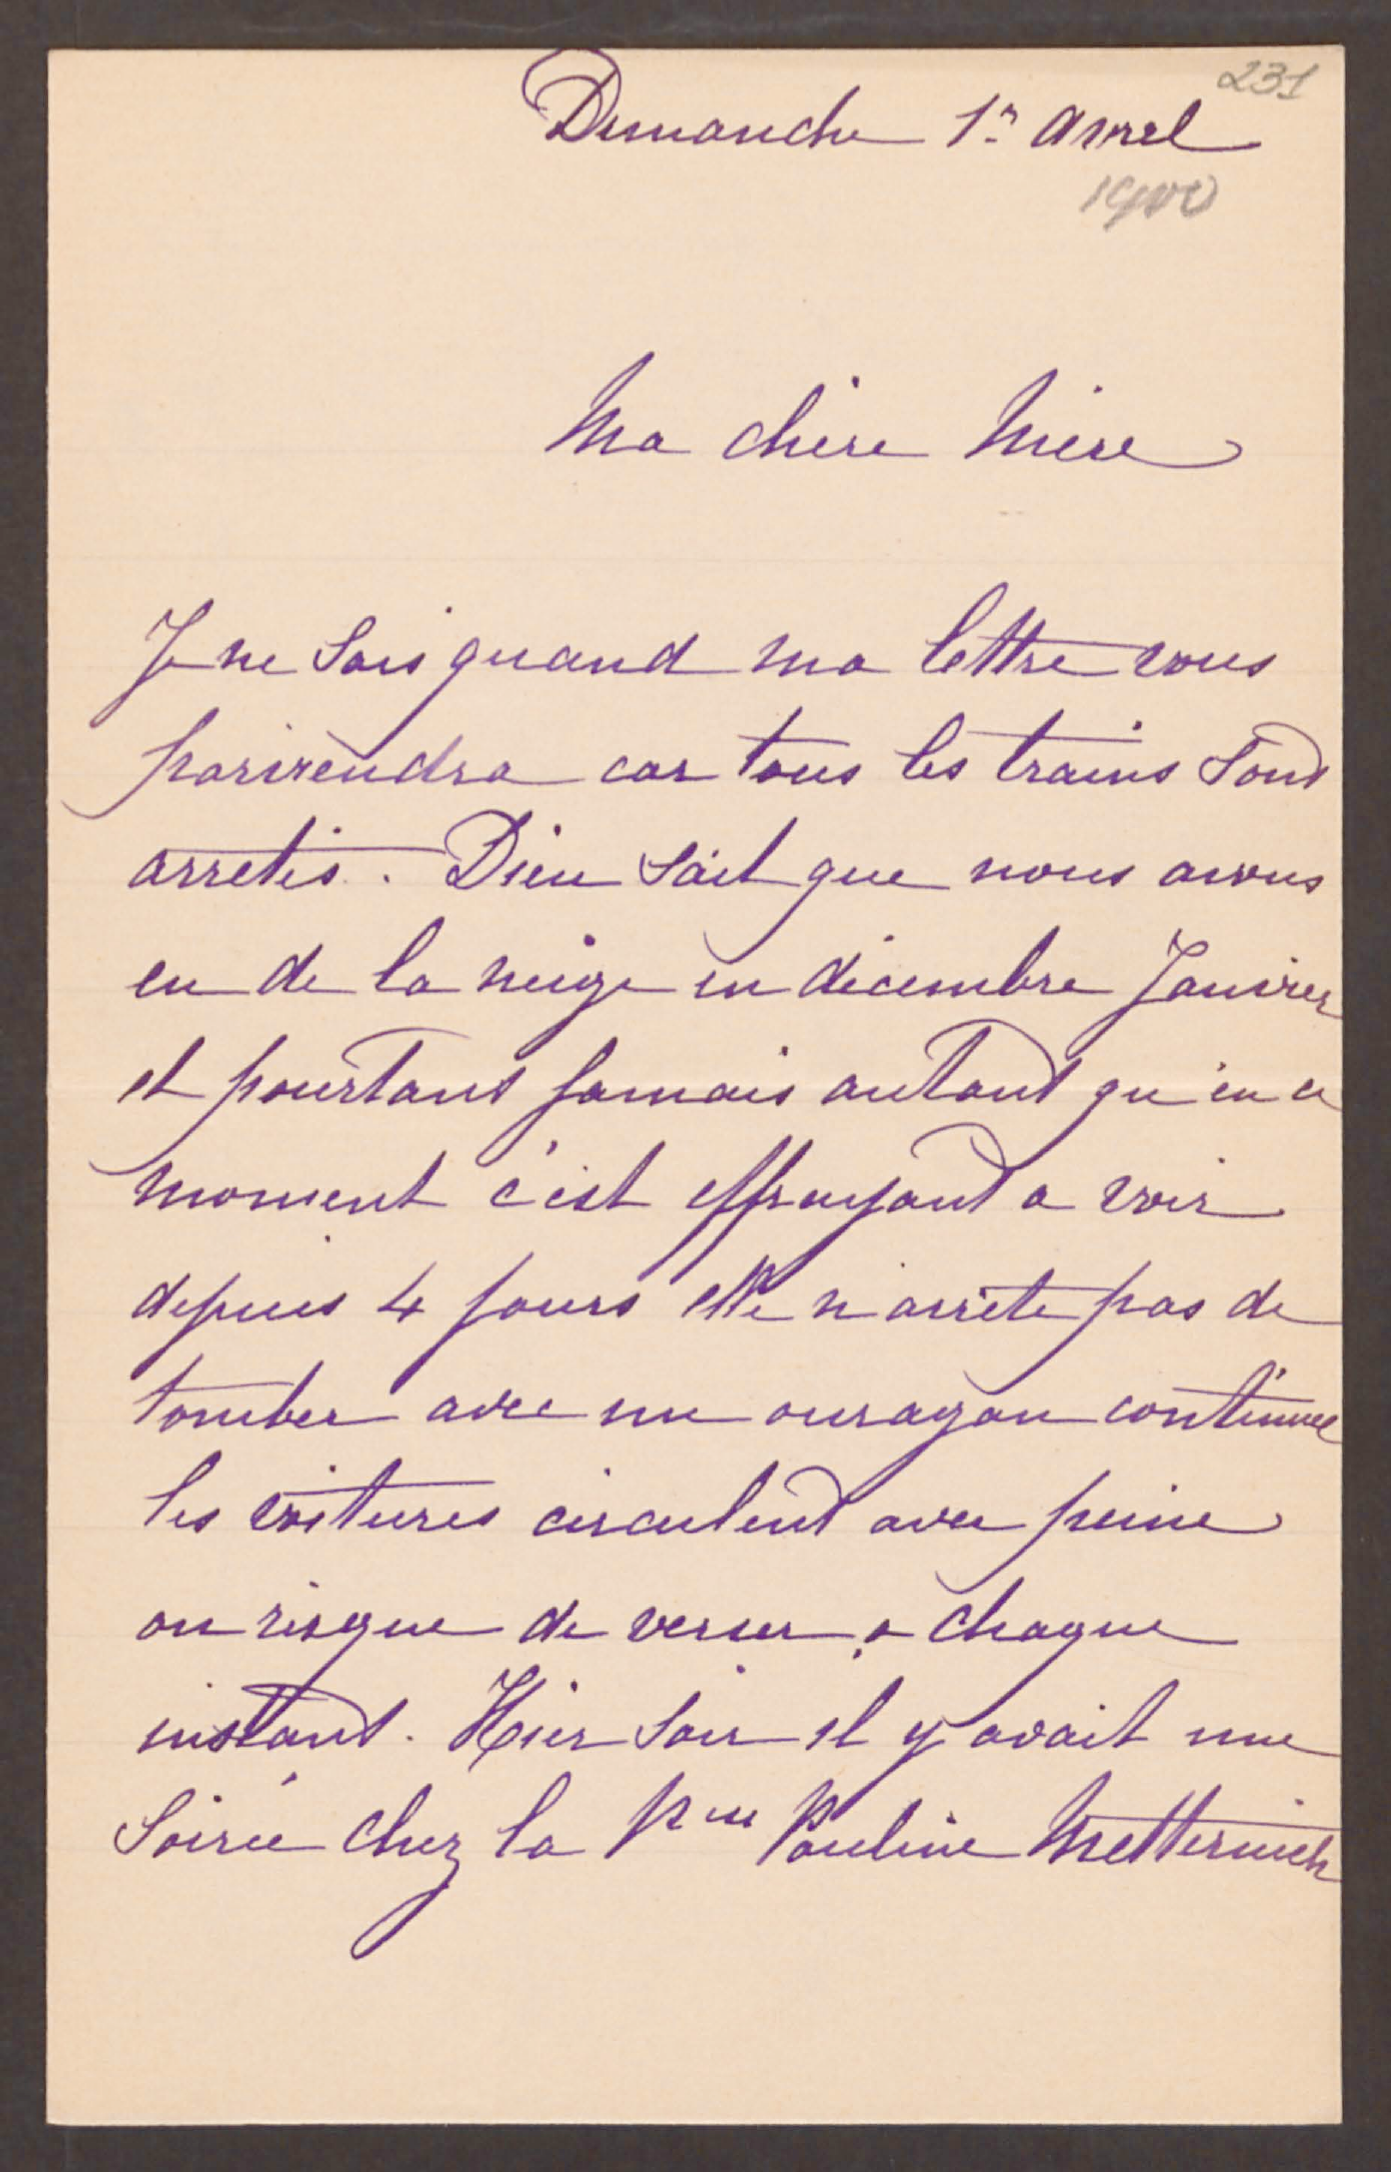 231
Dimanche 1er Avril
1900
Ma chère Mère
Je ne sais quand ma lettre vous
parviendra car tous les trains sont
arretés. Dieu sait que nous avons
eu de la neige en décembre Janvier
et pourtant jamais autant qu'en ce
moment c'est effrayant a voir
depuis 4 jours elle n'arrête pas de
tomber avec un ouragan continuel
les voitures circulent avec peine
on risque de verser a chaque
instant. Hier soir il y avait une
Soirée chez la Pcesse Pauline Metternich